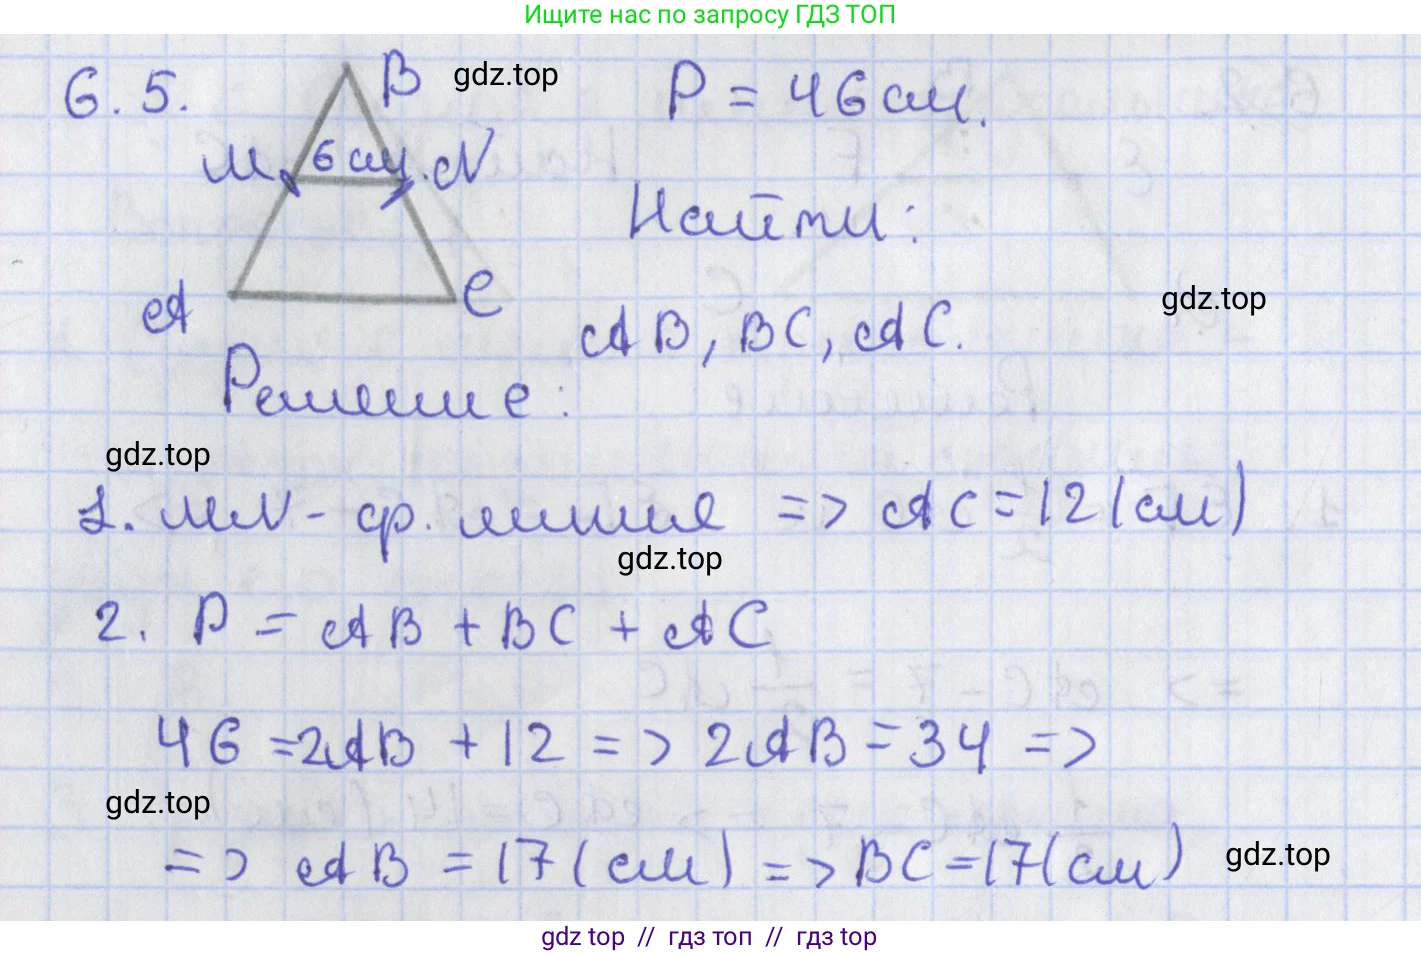 Ищите нас по запросу ГДЗ ТОП
6.5.
B
gdz.top
P = 46 см.
M
6 см
N
Найти:
A
C
gdz.top
AB, BC, AC.
Решение:
gdz.top
1. MN - ср. линия => AC = 12 (см)
gdz.top
2. P = AB + BC + AC
46 = 2AB + 12 => 2AB = 34 =>
gdz.top
=> AB = 17 (см) => BC = 17 (см)
gdz.top
gdz top // гдз топ // гдз top